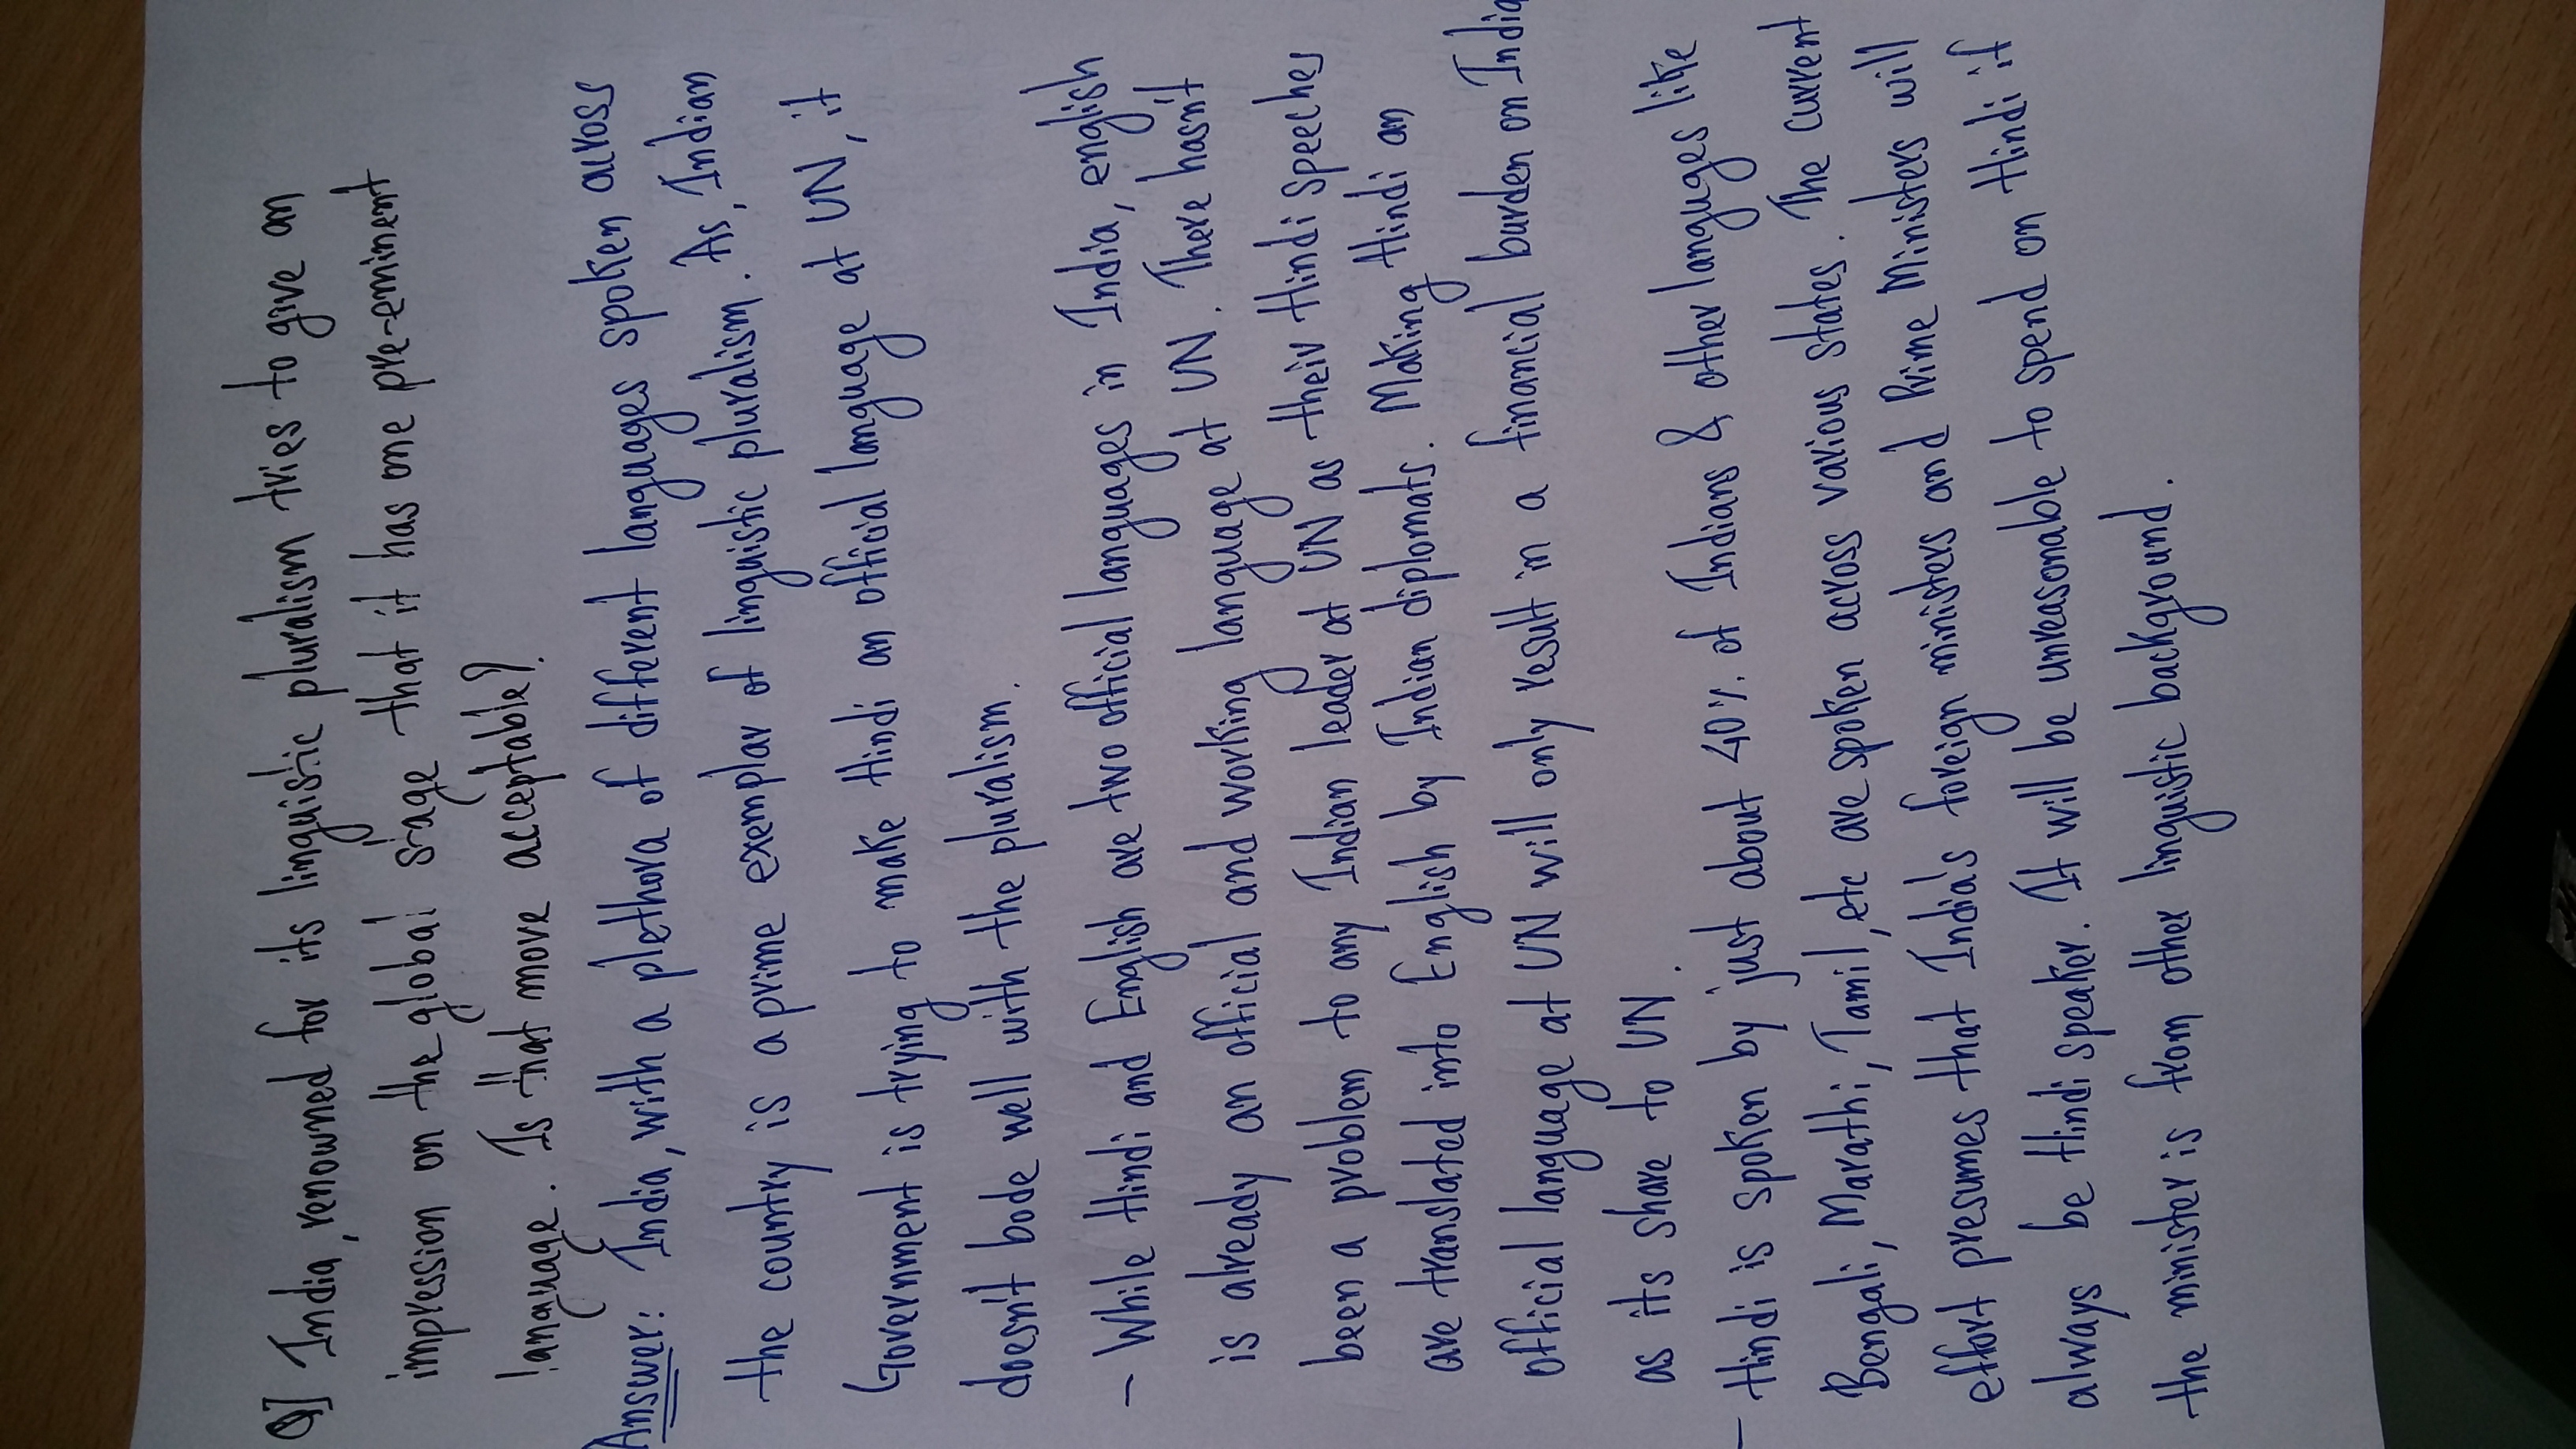 Q] India, renowned for its linguistic pluralism tries to give an
impression on the global stage that it has one pre-eminent
language. Is that move acceptable?
Answer: India, with a plethora of different languages spoken across
the country is a prime exemplar of linguistic pluralism. As, Indian
Government is trying to make Hindi an official language at UN, it
doesn't bode well with the pluralism.
- While Hindi and English are two official languages in India, english
is already an official and working language at UN. There hasn't
been a problem to any Indian leader at UN as their Hindi speeches
are translated into English by Indian diplomats. Making Hindi an
official language at UN will only result in a financial burden on India
as its share to UN.
- Hindi is spoken by just about 40% of Indians & other languages like
Bengali, Marathi, Tamil, etc are spoken across various states. The current
effort presumes that India's foreign ministers and Prime Ministers will
always be Hindi speaker. It will be unreasonable to spend on Hindi if
the minister is from other linguistic background.